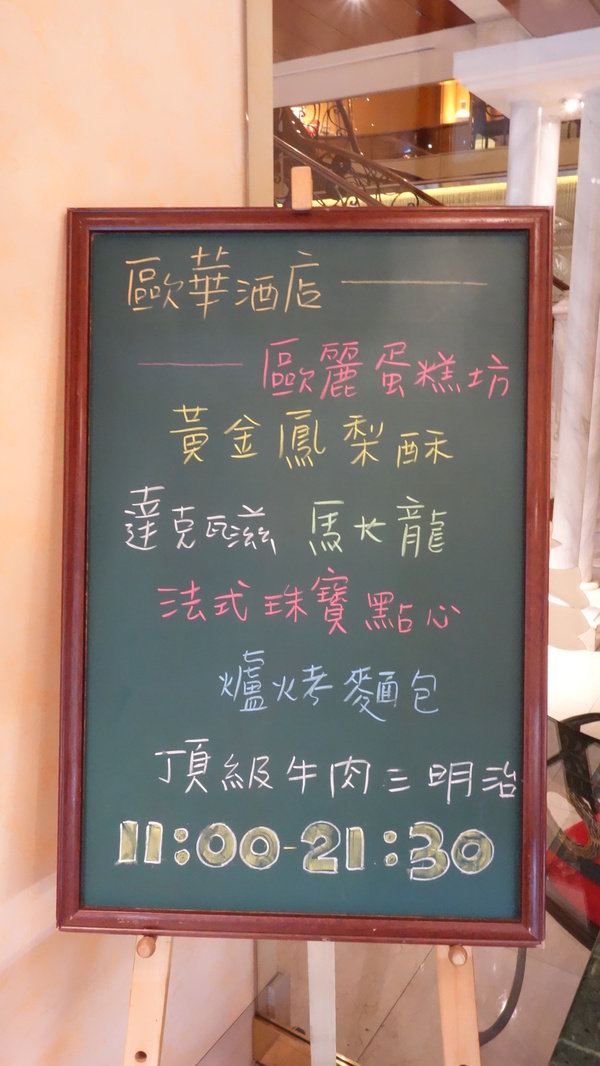 歐華酒店——
——歐麗蛋糕坊
黃金鳳梨酥
達克瓦滋 馬卡龍
法式珠寶點心
爐烤麵包
頂級牛肉三明治
11:00-21:30